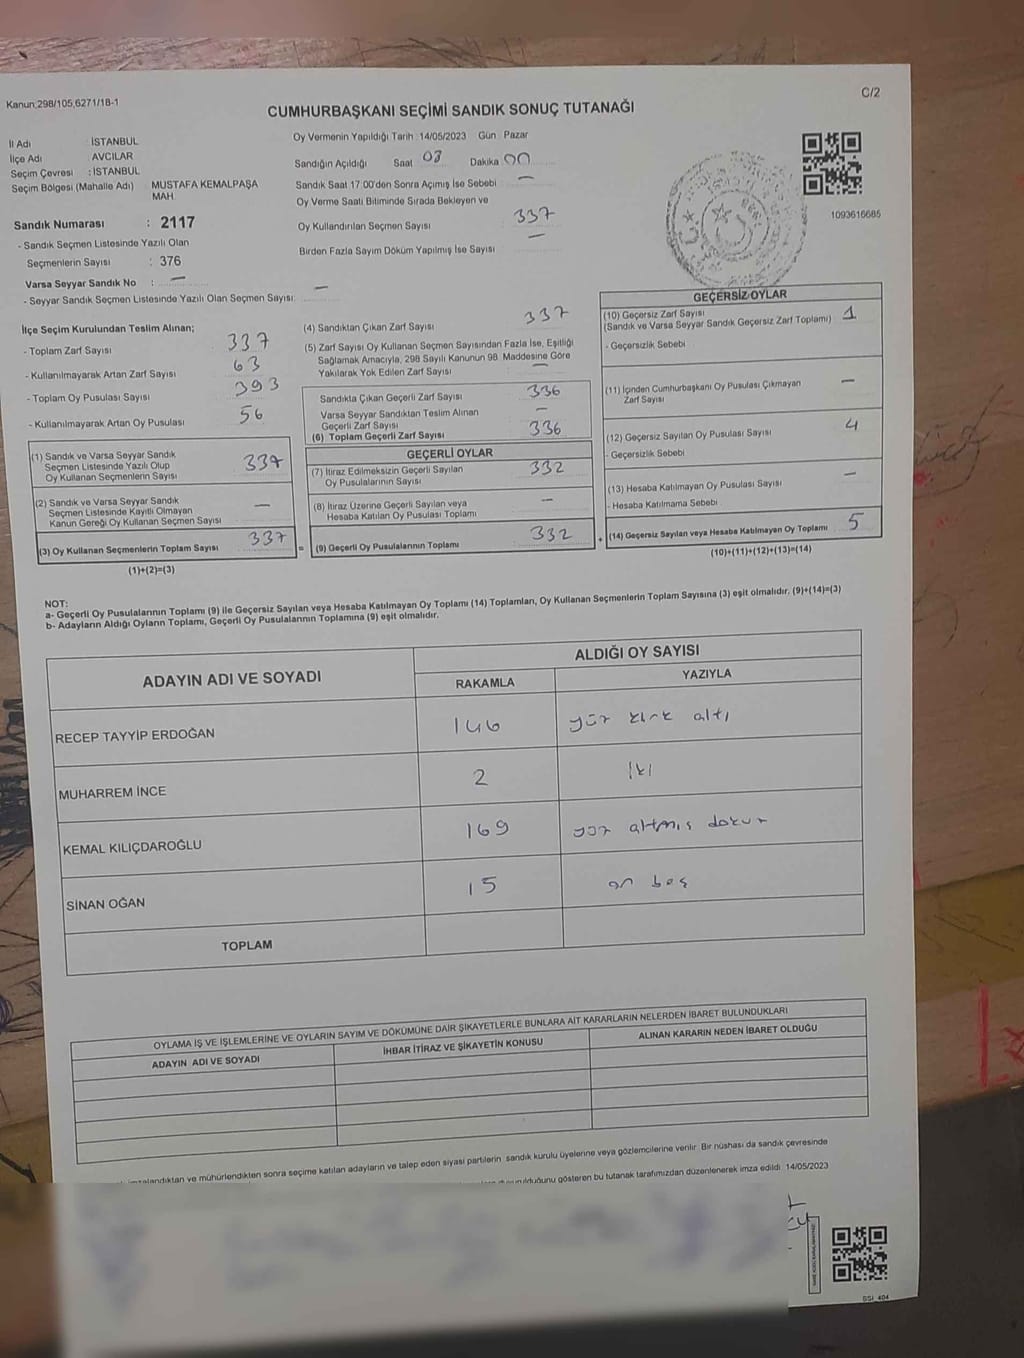 Kanun;298/105,6271/18-1
C/2
CUMHURBAŞKANI SEÇİMİ SANDIK SONUÇ TUTANAĞI
İl Adı : İSTANBUL
İlçe Adı : AVCILAR
Seçim Çevresi : İSTANBUL
Seçim Bölgesi (Mahalle Adı) MUSTAFA KEMALPAŞA MAH.
Sandık Numarası : 2117
- Sandık Seçmen Listesinde Yazılı Olan
Seçmenlerin Sayısı : 376
Varsa Seyyar Sandık No : —
- Seyyar Sandık Seçmen Listesinde Yazılı Olan Seçmen Sayısı: —
Oy Vermenin Yapıldığı Tarih : 14/05/2023 Gün : Pazar
Sandığın Açıldığı Saat 03 Dakika 00
Sandık Saat 17:00'den Sonra Açımış İse Sebebi —
Oy Verme Saati Bitiminde Sırada Bekleyen ve
Oy Kullandırılan Seçmen Sayısı 337
Birden Fazla Sayım Döküm Yapılmış İse Sayısı —
1093616685
İlçe Seçim Kurulundan Teslim Alınan;
- Toplam Zarf Sayısı 337
- Kullanılmayarak Artan Zarf Sayısı 63
- Toplam Oy Pusulası Sayısı 393
- Kullanılmayarak Artan Oy Pusulası 56
(1) Sandık ve Varsa Seyyar Sandık
Seçmen Listesinde Yazılı Olup
Oy Kullanan Seçmenlerin Sayısı 337
(2) Sandık ve Varsa Seyyar Sandık
Seçmen Listesinde Kayıtlı Olmayan
Kanun Gereği Oy Kullanan Seçmen Sayısı —
(3) Oy Kullanan Seçmenlerin Toplam Sayısı 337
(1)+(2)=(3)
(4) Sandıktan Çıkan Zarf Sayısı 337
(5) Zarf Sayısı Oy Kullanan Seçmen Sayısından Fazla İse, Eşitliği
Sağlamak Amacıyla, 298 Sayılı Kanunun 98. Maddesine Göre
Yakılarak Yok Edilen Zarf Sayısı —
Sandıkta Çıkan Geçerli Zarf Sayısı 336
Varsa Seyyar Sandıktan Teslim Alınan
Geçerli Zarf Sayısı —
(6) Toplam Geçerli Zarf Sayısı 336
GEÇERLİ OYLAR
(7) İtiraz Edilmeksizin Geçerli Sayılan
Oy Pusulalarının Sayısı 332
(8) İtiraz Üzerine Geçerli Sayılan veya
Hesaba Katılan Oy Pusulası Toplamı —
= (9) Geçerli Oy Pusulalarının Toplamı 332
GEÇERSİZ OYLAR
(10) Geçersiz Zarf Sayısı
(Sandık ve Varsa Seyyar Sandık Geçersiz Zarf Toplamı) 1
- Geçersizlik Sebebi
(11) İçinden Cumhurbaşkanı Oy Pusulası Çıkmayan
Zarf Sayısı —
(12) Geçersiz Sayılan Oy Pusulası Sayısı 4
- Geçersizlik Sebebi
(13) Hesaba Katılmayan Oy Pusulası Sayısı —
- Hesaba Katılmama Sebebi
+ (14) Geçersiz Sayılan veya Hesaba Katılmayan Oy Toplamı 5
(10)+(11)+(12)+(13)=(14)
NOT:
a- Geçerli Oy Pusulalarının Toplamı (9) ile Geçersiz Sayılan veya Hesaba Katılmayan Oy Toplamı (14) Toplamları, Oy Kullanan Seçmenlerin Toplam Sayısına (3) eşit olmalıdır. (9)+(14)=(3)
b- Adayların Aldığı Oyların Toplamı, Geçerli Oy Pusulalarının Toplamına (9) eşit olmalıdır.
ADAYIN ADI VE SOYADI
ALDIĞI OY SAYISI
RAKAMLA YAZIYLA
RECEP TAYYİP ERDOĞAN 146 yüz kırk altı
MUHARREM İNCE 2 İki
KEMAL KILIÇDAROĞLU 169 yüz altmış dokuz
SİNAN OĞAN 15 on beş
TOPLAM
OYLAMA İŞ VE İŞLEMLERİNE VE OYLARIN SAYIM VE DÖKÜMÜNE DAİR ŞİKAYETLERLE BUNLARA AİT KARARLARIN NELERDEN İBARET BULUNDUKLARI
ADAYIN ADI VE SOYADI İHBAR İTİRAZ VE ŞİKAYETİN KONUSU ALINAN KARARIN NEDEN İBARET OLDUĞU
ve mühürlendikten sonra seçime katılan adayların ve talep eden siyasi partilerin sandık kurulu üyelerine veya gözlemcilerine verilir. Bir nüshası da sandık çevresinde
gösteren bu tutanak tarafımızdan düzenlenerek imza edildi. 14/05/2023